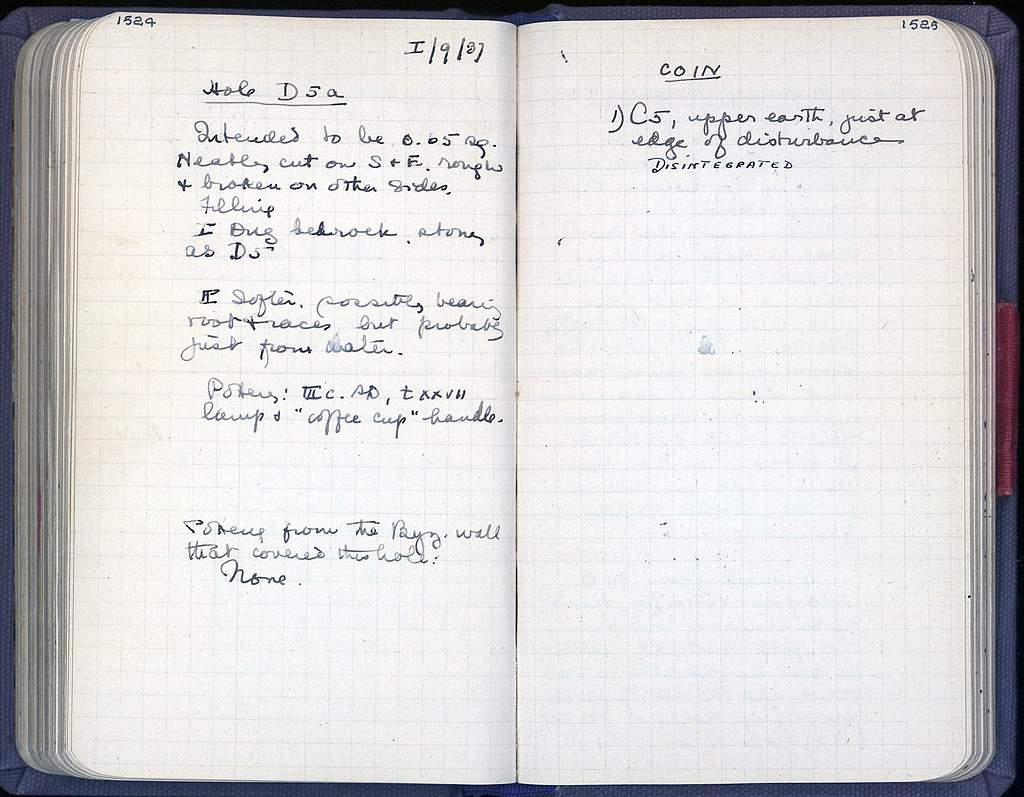 1524
I/9/37
Hole D5a
Intended to be 0.05 sq.
Neatly cut on S + E. rough
+ broken on other sides.
Filling
I Dug bedrock, stoney
as D5
II Softer. possibly bearing
root traces but probably
just from water.
Pottery: III c. AD, t XXVII
lamp + "coffee cup" handle.
Pottery from the Byz. wall
that covered this hole:
None.
1525
COIN
1) C5, upper earth, just at
edge of disturbance
DISINTEGRATED